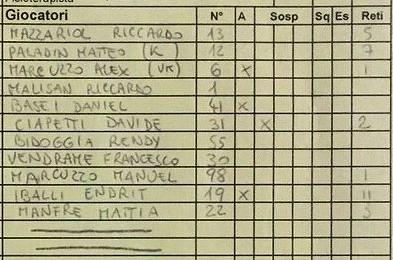 Giocatori N° A Sosp Sq Es Reti
MAZZARIOL RICCARDO 13 5
PALADIN MATTEO (K) 12 7
MARCUZZO ALEX (VK) 6 x 1
MALISAN RICCARDO 1
BASEI DANIEL 41 x
CIAPETTI DAVIDE 31 x 2
BIDOGGIA RENDY 55
VENDRAME FRANCESCO 30
MARCUZZO MANUEL 98 1
IBALLI ENDRIT 19 x 11
MANFRE MATTIA 22 3